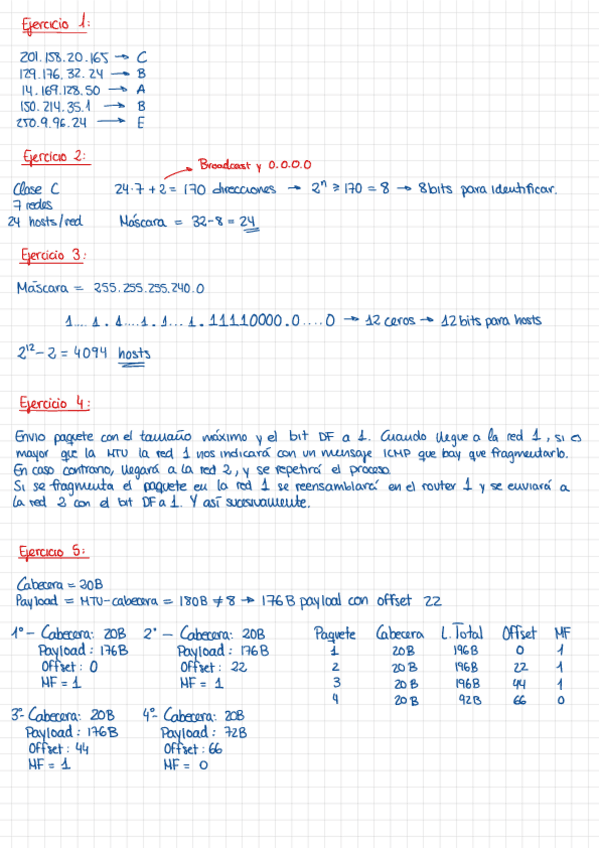 Ejercicio 1:
201.158.20.165 → C
129.176.32.24 → B
14.169.128.50 → A
150.214.35.1 → B
250.9.96.24 → E
Ejercicio 2:
Broadcast y 0.0.0.0
Clase C 24·7+2 = 170 direcciones → 2^n ≥ 170 = 8 → 8 bits para identificar.
7 redes
24 hosts/red Máscara = 32-8 = 24
Ejercicio 3:
Máscara = 255.255.255.240.0
1....1.1....1.1...1.11110000.0....0 → 12 ceros → 12 bits para hosts
2^12 - 2 = 4094 hosts
Ejercicio 4:
Envio paquete con el tamaño máximo y el bit DF a 1. Cuando llegue a la red 1, si es
mayor que la MTU la red 1 nos indicará con un mensaje ICMP que hay que fragmentarlo.
En caso contrario, llegará a la red 2, y se repetirá el proceso
Si se fragmenta el paquete en la red 1 se reensamblará en el router 1 y se enviará a
la red 2 con el bit DF a 1. Y así sucesivamente.
Ejercicio 5:
Cabecera = 20B
Payload = MTU-cabecera = 180B ≠ 8 → 176B payload con offset 22
1º - Cabecera: 20B 2º - Cabecera: 20B Paquete Cabecera L.Total Offset MF
Payload: 176B Payload: 176B 1 20B 196B 0 1
Offset: 0 Offset: 22 2 20B 196B 22 1
MF = 1 MF = 1 3 20B 196B 44 1
4 20B 92B 66 0
3º- Cabecera: 20B 4º- Cabecera: 20B
Payload: 176B Payload: 72B
Offset: 44 Offset: 66
MF = 1 MF = 0